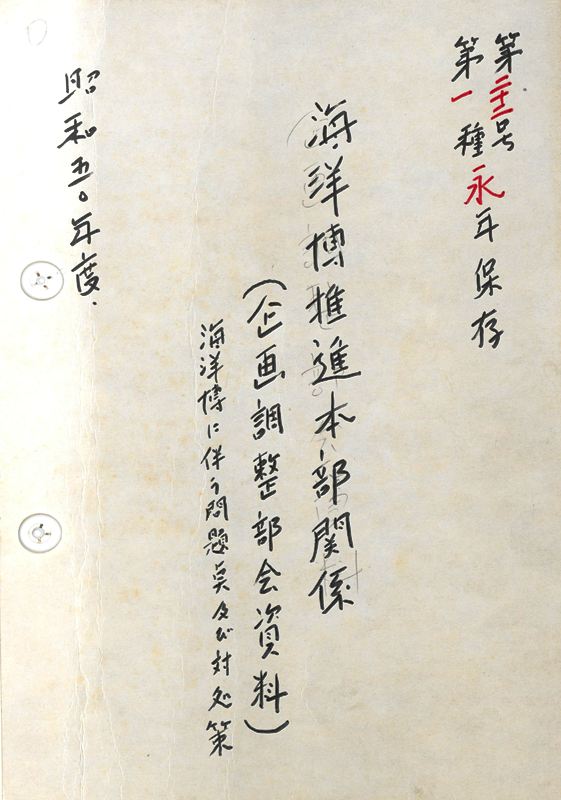 第二十二号
第一種永年保存
海洋博推進本部関係
(企画調整部会資料)
海洋博に伴う問題点及び対処策
昭和五〇年度.